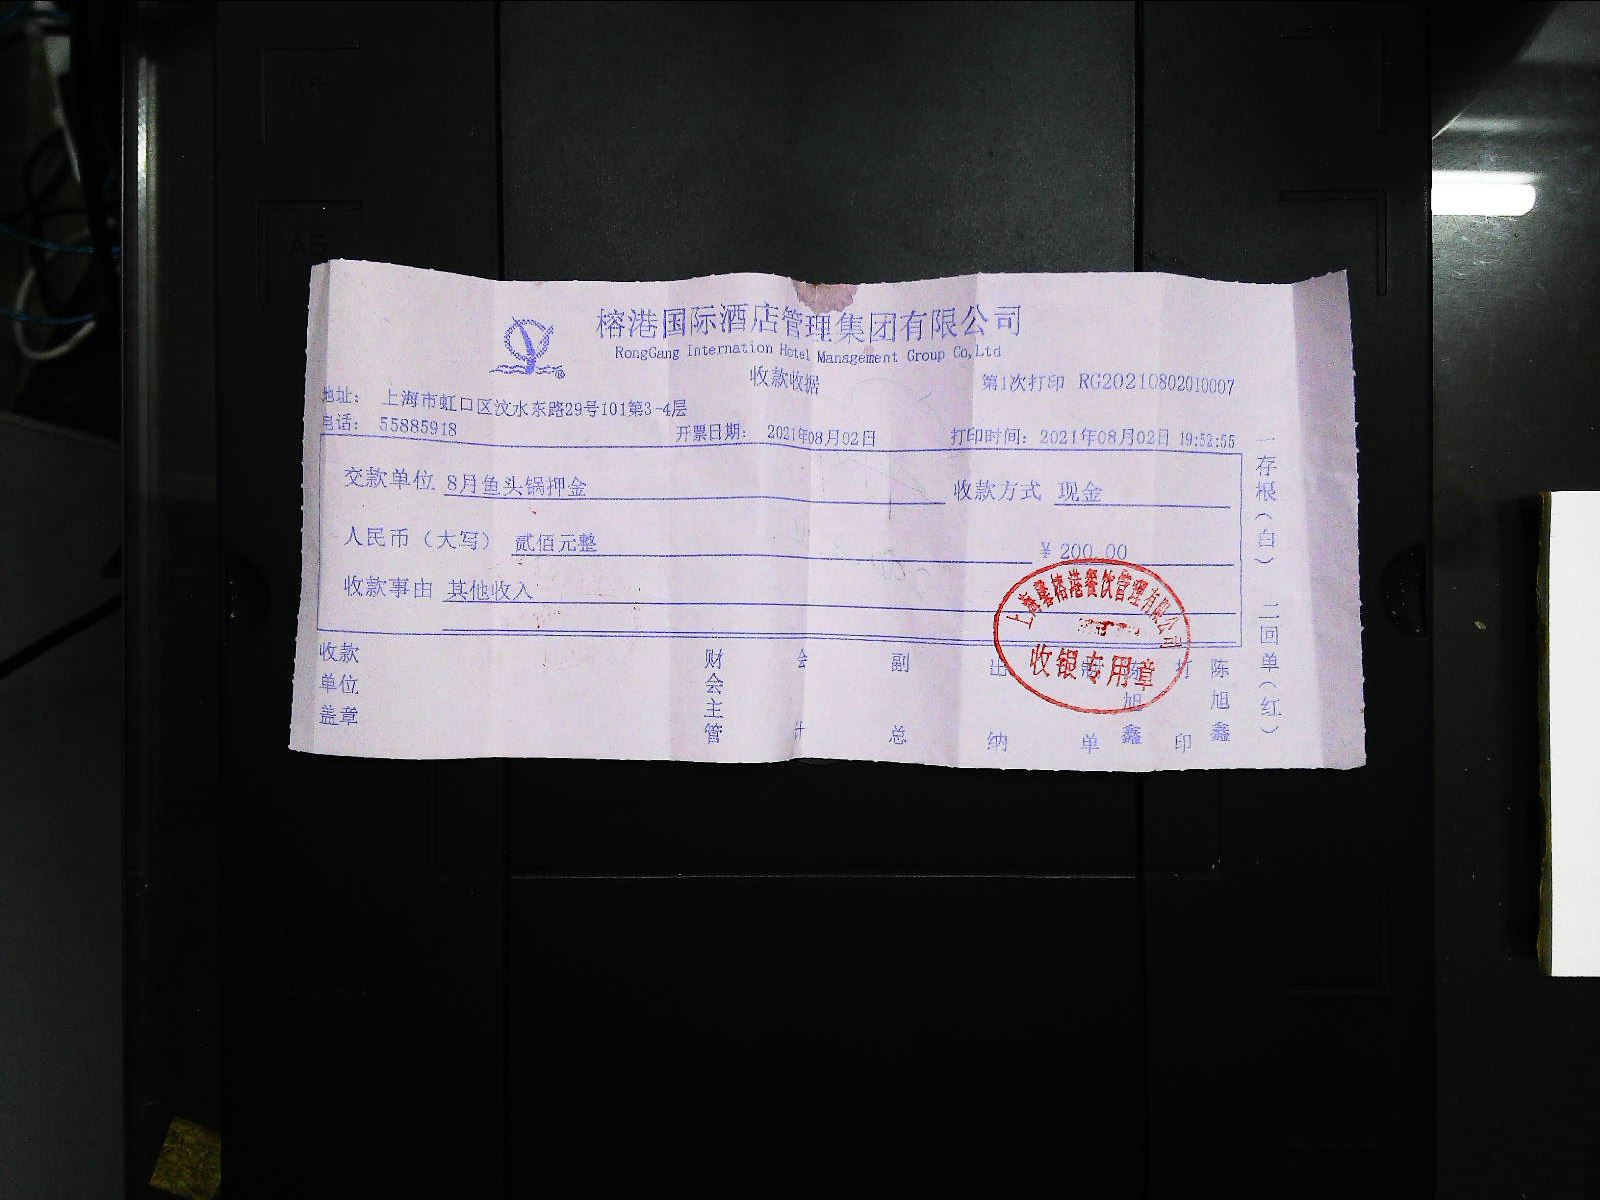 A4
A5
榕港国际酒店管理集团有限公司
RongGang Internation Hotel Management Group Co,Ltd
收款收据
第1次打印 RG20210802010007
地址： 上海市虹口区汶水东路29号101第3-4层
电话： 55885918
开票日期： 2021年08月02日
打印时间：2021年08月02日 19:52:55
交款单位 8月鱼头锅押金
收款方式 现金
人民币（大写） 贰佰元整
¥ 200.00
收款事由 其他收入
上海馨榕港餐饮管理有限公司
收银专用章
收款单位盖章
财会主管
会计
副总
出纳
制单
陈旭鑫
打印
陈旭鑫
一存根（白） 二回单（红）